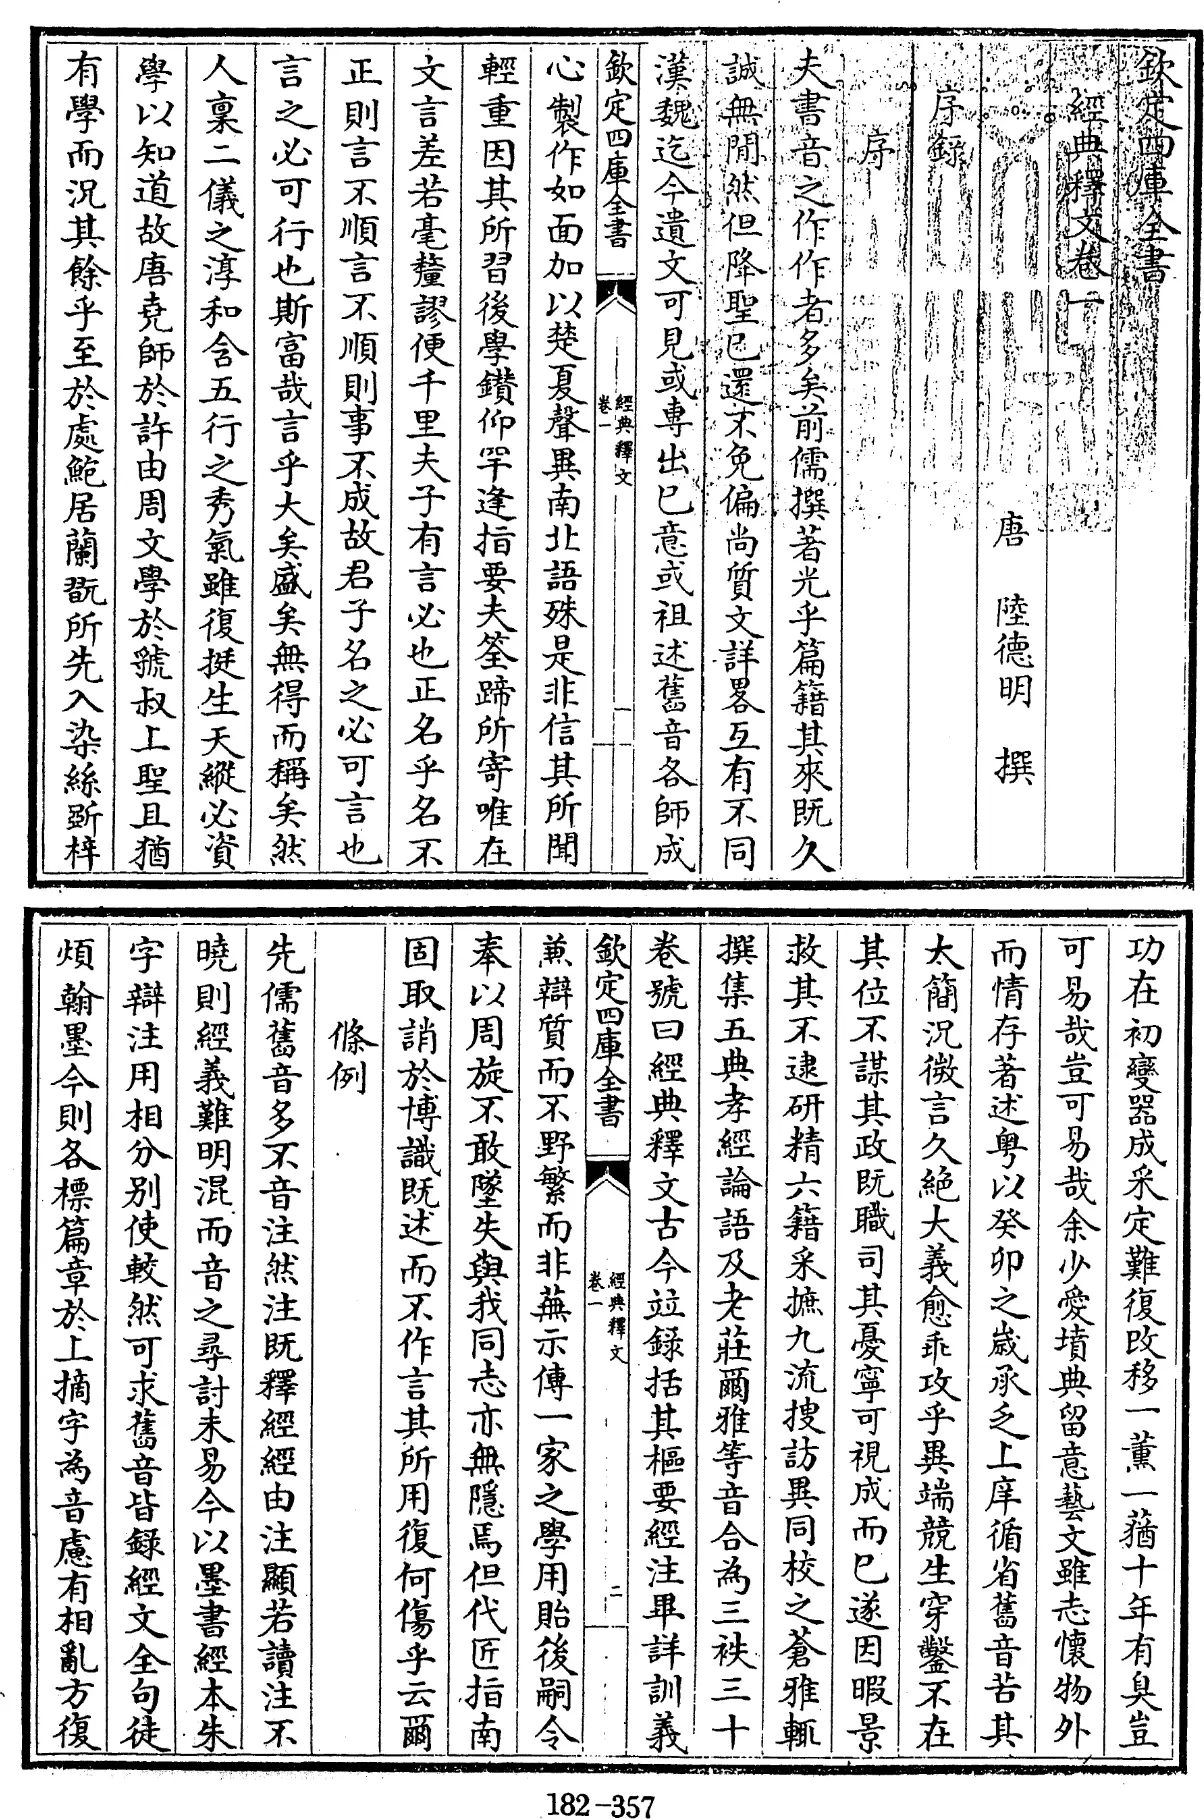 欽定四庫全書
經典釋文卷一
唐 陸德明 撰
序錄
序
夫書音之作作者多矣前儒撰著光乎篇籍其來既久
誠無閒然但降聖已還不免偏尚質文詳畧互有不同
漢魏迄今遺文可見或專出己意或祖述舊音各師成
欽定四庫全書
經典釋文
卷一
一
心製作如面加以楚夏聲異南北語殊是非信其所聞
輕重因其所習後學鑽仰罕逢指要夫筌蹄所寄唯在
文言差若毫釐謬便千里夫子有言必也正名乎名不
正則言不順言不順則事不成故君子名之必可言也
言之必可行也斯富哉言乎大矣盛矣無得而稱矣然
人稟二儀之淳和含五行之秀氣雖復挺生天縱必資
學以知道故唐堯師於許由周文學於虢叔上聖且猶
有學而況其餘乎至於處鮑居蘭翫所先入染絲斲梓
功在初變器成采定難復改移一薰一蕕十年有臭豈
可易哉豈可易哉余少愛墳典留意藝文雖志懷物外
而情存著述粤以癸卯之嵗承乏上庠循省舊音苦其
太簡況微言久絶大義愈乖攻乎異端競生穿鑿不在
其位不謀其政既職司其憂寧可視成而已遂因暇景
救其不逮研精六籍采摭九流搜訪異同校之蒼雅輒
撰集五典孝經論語及老莊爾雅等音合為三袟三十
卷號曰經典釋文古今竝錄括其樞要經注畢詳訓義
欽定四庫全書
經典釋文
卷一
二
兼辯質而不野繁而非蕪示傳一家之學用貽後嗣令
奉以周旋不敢墜失與我同志亦無隱焉但代匠指南
固取誚於博識既述而不作言其所用復何傷乎云爾
條例
先儒舊音多不音注然注既釋經經由注顯若讀注不
曉則經義難明混而音之尋討未易今以墨書經本朱
字辯注用相分別使較然可求舊音皆錄經文全句徒
煩翰墨今則各標篇章於上摘字為音慮有相亂方復
182-357